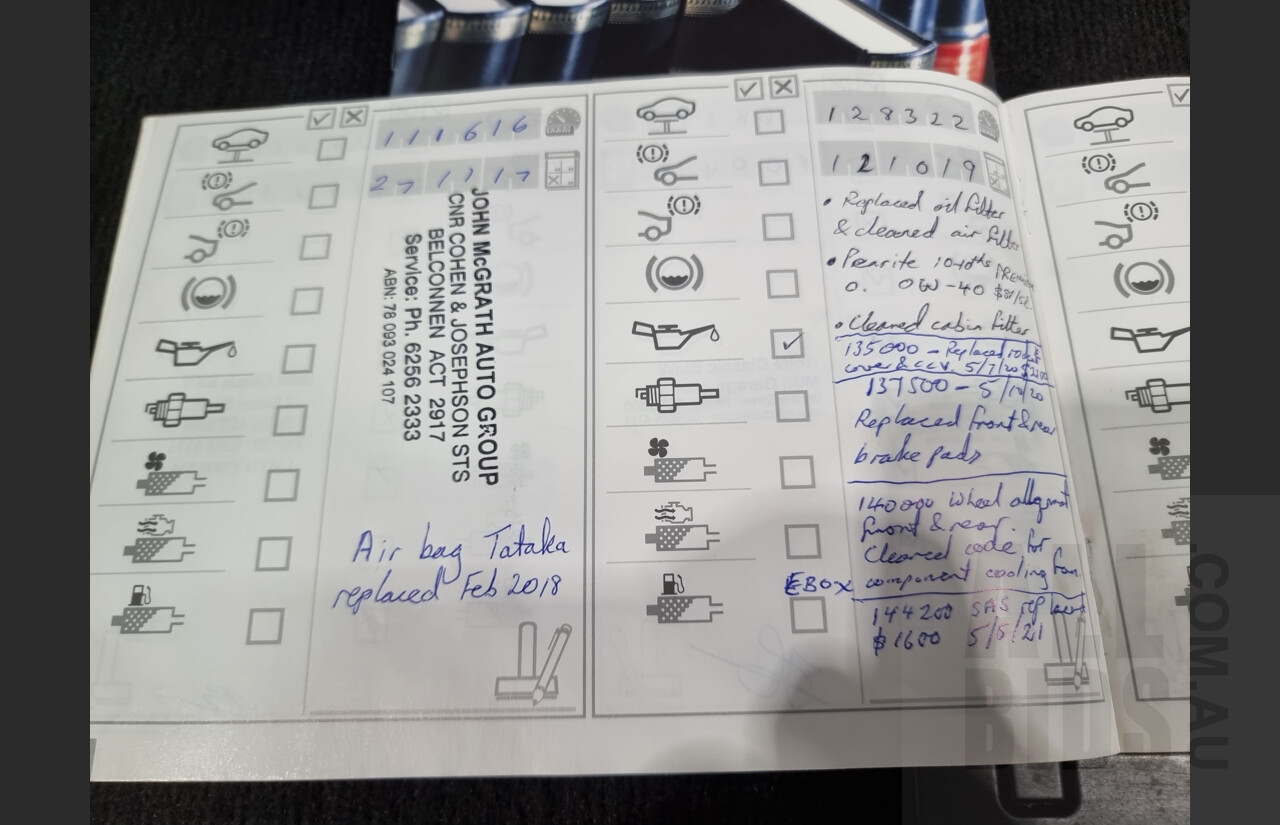 111616
27 11 17
JOHN McGRATH AUTO GROUP
CNR COHEN & JOSEPHSON STS
BELCONNEN ACT 2917
Service: Ph. 6256 2333
ABN: 78 093 024 107
Air bag Tataka
replaced Feb 2018
128322
121019
• Replaced oil filter
& cleaned air filter
• Penrite 10 tenths PREMIUM
0W-40
• Cleaned cabin filter
135000 - Replaced
cover & CCV. 5/7/20
137500 - 5/10/20
Replaced front & rear
brake pads
140000 Wheel alignment
front & rear.
Cleared code for
EBOX component cooling fan
144200 SAS replaced
$1600 5/5/21
BIDS
.COM.AU